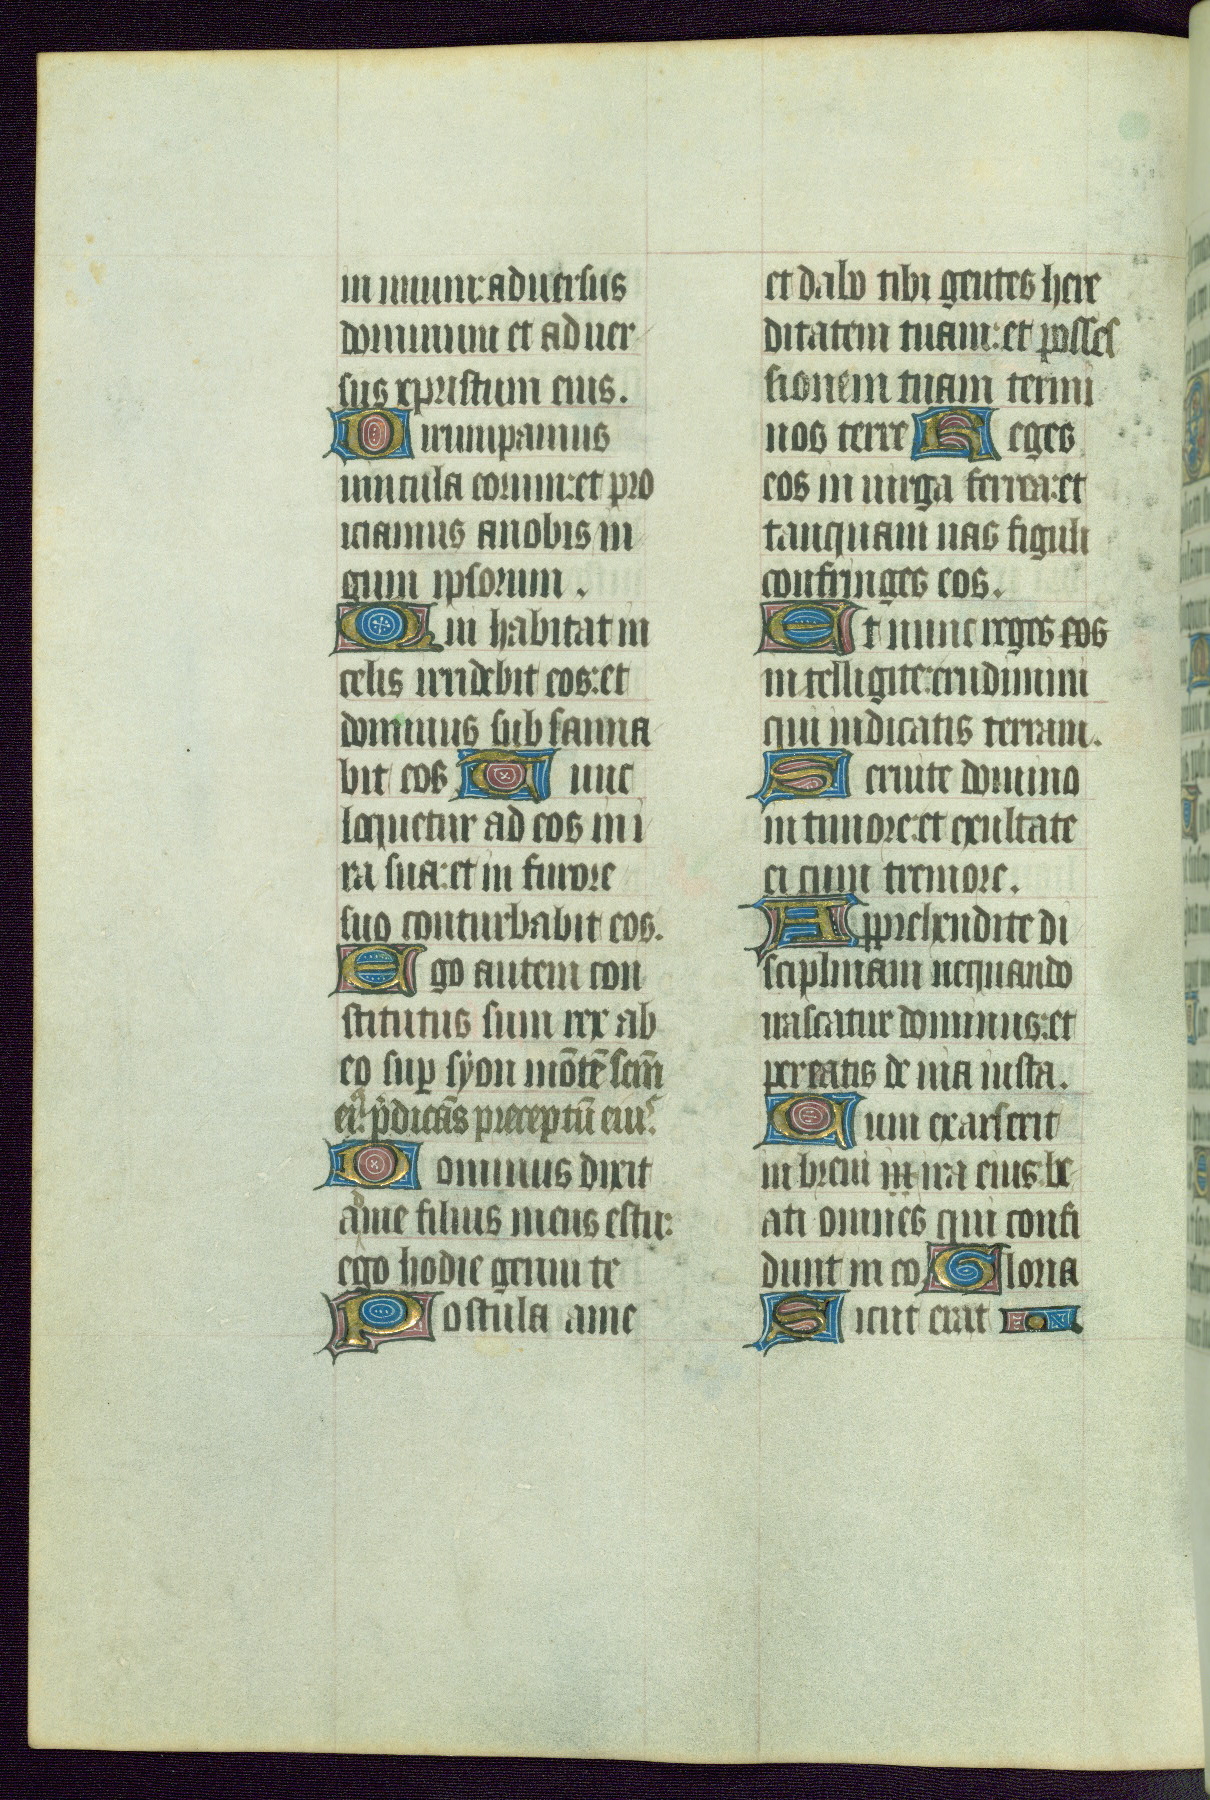 in unum: aduersus
dominum et aduer
sus xpristum eius.
Dirumpamus
uincula eorum: et pro
iciamus anobis iu
gum ipsorum.
Qui habitat in
celis irridebit eos: et
dominus subsanna
bit eos Tunc
loquetur ad eos in i
ra sua: et in furore
suo conturbabit eos.
Ego autem con
stitutus sum rex ab
eo sup syon mōtē scm̄
ei: pdicās preceptū eiuˢ.
Dominus dixit
ad me filius meus es tu:
ego hodie genui te
Postula ame
et dabo tibi gentes here
ditatem tuam: et posses
sionem tuam termi
nos terre Reges
eos in uirga ferrea: et
tanquam uas figuli
confringes eos.
Et nunc reges eos
intelligite: erudimini
qui iudicatis terram.
Seruite domino
in timore: et exultate
ei cum tremore.
Apprehendite di
sciplinam nequando
irascatur dominus: et
pereatis de uia iusta.
Cum exarserit
in breui in ira eius: be
ati omnes qui confi
dunt in eo Gloria
Sicut erat